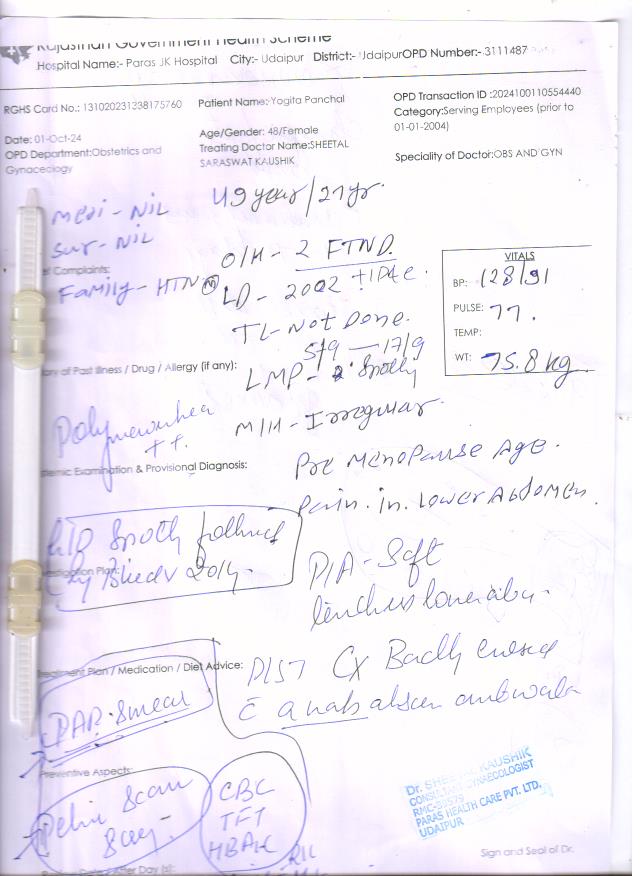 Rajasthan Government Health Scheme
Hospital Name:- Paras JK Hospital City:- Udaipur District:- Udaipur OPD Number:- 3111487
RGHS Card No.: 131020231338175760
Patient Name: Yogita Panchal
OPD Transaction ID :2024100110554440
Category:Serving Employees (prior to 01-01-2004)
Date: 01-Oct-24
Age/Gender: 48/Female
OPD Department:Obstetrics and Gynaecology
Treating Doctor Name:SHEETAL SARASWAT KAUSHIK
Speciality of Doctor:OBS AND GYN
49 year/27yr.
Medi - NIL
Sur - NIL
Complaints:
Family - HTN (M)
O/H - 2 FTND.
LD - 2002
TL - Not Done.
VITALS
BP: 128/91
PULSE: 77.
TEMP:
WT: 75.8 kg
5/9 — 17/9
ory of Past Illness / Drug / Allergy (if any):
LMP - Spotty
M/H - Irregular
Poly
++.
temic Examination & Provisional Diagnosis:
Pre Menopause Age.
Pain. in. Lower Abdomen.
H/o Spotty followed
by
P/A - Soft
Investigation Plan:
Treatment Plan / Medication / Diet Advice:
P/S Cx Badly
PAP. Smear
Preventive Aspects:
Scan
CBC
TFT
HBA1C
Dr. SHEETAL KAUSHIK
CONSULTANT GYNAECOLOGIST
PARAS HEALTH CARE PVT. LTD.
UDAIPUR
Sign and Seal of Dr.
/ After Day (s):